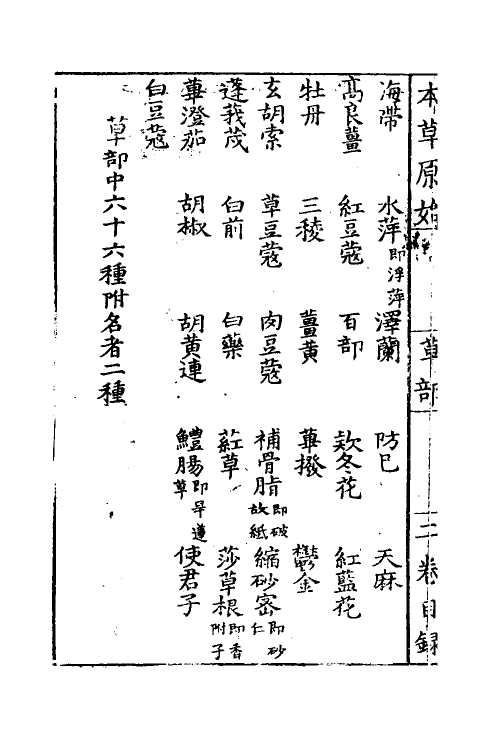 本草原始 草部 二卷目録
海帶 水萍即浮萍 澤蘭 防已 天麻
高良薑 紅豆蔻 百部 欵冬花 紅藍花
牡丹 三稜 薑黄 蓽撥 鬱金
玄胡索 草豆蔻 肉豆蔻 補骨脂即破故紙 縮砂宻即砂仁
蓬莪茂 白前 白藥 葒草 莎草根即香附子
蓽澄茄 胡椒 胡黄連 鱧腸即旱蓮草 使君子
白豆蔻
草部中六十六種附名者二種